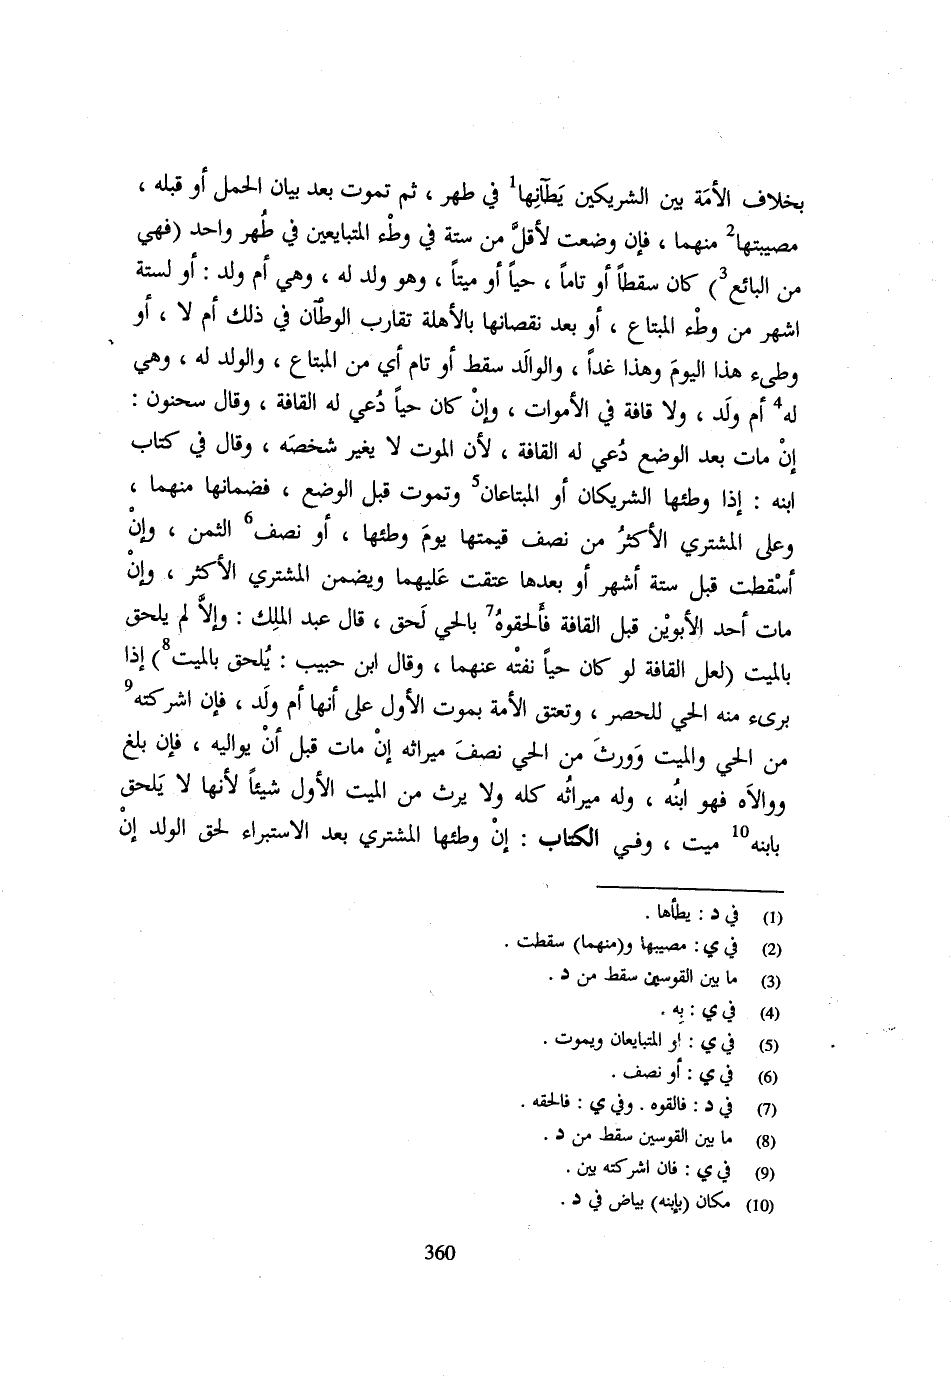 بخلاف الأمَة بين الشريكين يَطَآنِها1 في طهر ، ثم تموت بعد بيان الحمل أو قبله ،
مصيبتها2 منهما ، فإن وضعت لأقلَّ من ستة في وطْء المتبايعين في طُهر واحد (فهي
من البائع3) كان سقطاً أو تاماً ، حياً أو ميتاً ، وهو ولد له ، وهي أم ولد : أو لستة
اشهر من وطْء المبتاع ، أو بعد نقصانها بالأهلة تقارب الوطآن في ذلك أم لا ، أو
وطىء هذا اليومَ وهذا غداً ، والوالَد سقط أو تام أي من المبتاع ، والولد له ، وهي
له4 أم ولَد ، ولا قافة في الأموات ، وإنْ كان حياً دُعي له القافة ، وقال سحنون :
إنْ مات بعد الوضع دُعي له القافة ، لأن الموت لا يغير شخصَه ، وقال في كتاب
ابنه : إذا وطئها الشريكان أو المبتاعان5 وتموت قبل الوضع ، فضمانها منهما ،
وعلى المشتري الأكثرُ من نصف قيمتها يومَ وطئها ، أو نصف6 الثمن ، وإنْ
أسْقطت قبل ستة أشهر أو بعدها عتقت عَليهما ويضمن المشتري الأكثر ، وإنْ
مات أحد الأبويْن قبل القافة فأَلحقوهُ7 بالحي لَحق ، قال عبد الملِك : وإلاَّ لم يلحق
بالميت (لعل القافة لو كان حياً نفتْه عنهما ، وقال ابن حبيب : يُلحق بالميت8) إذا
برىء منه الحي للحصر ، وتعتق الأمة بموت الأول على أنها أم ولَد ، فإن اشركته9
من الحي والميت وَورثَ من الحي نصفَ ميراثه إنْ مات قبل أنْ يواليه ، فإن بلغ
ووالاَه فهو ابنُه ، وله ميراثُه كله ولا يرث من الميت الأول شيئاً لأنها لا يَلحق
بابنه10 ميت ، وفي الكتاب : إنْ وطئها المشتري بعد الاستبراء لحق الولد إنْ
(1) في د : يطأها .
(2) في ي : مصيبها و(منهما) سقطت .
(3) ما بين القوسين سقط من د .
(4) في ي : بِه .
(5) في ي : او المتبايعان ويموت .
(6) في ي : أو نصف .
(7) في د : فالقوه . وفي ي : فالحقه .
(8) ما بين القوسين سقط من د .
(9) في ي : فان اشركته بين .
(10) مكان (بإبنه) بياض في د .
360